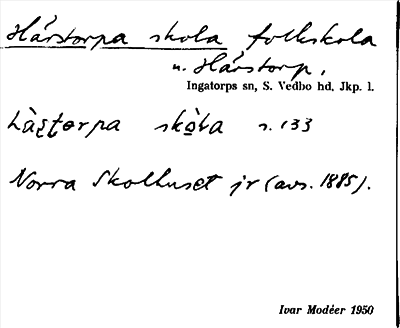 Hårstorpa skola folkskola
u. Hårstorp,
Ingatorps sn, S. Vedbo hd, Jkp. l.
skola s. 133
Norra Skolhuset jr (avs. 1885).
Ivar Modéer 1950